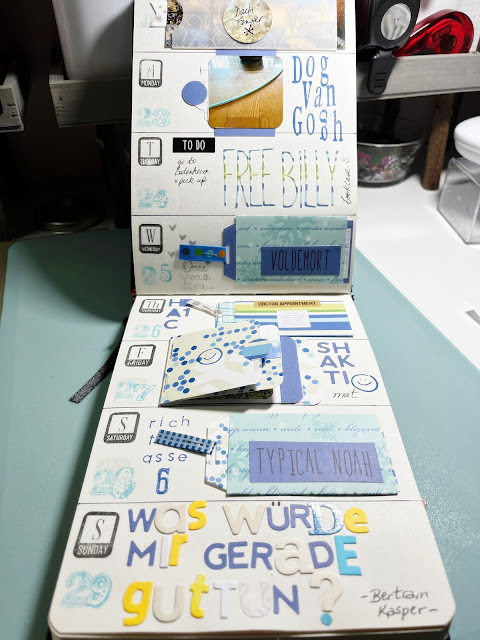 Doch
Fenger
M
MONDAY
23
DOG
VAN
GOGH
T
TUESDAY
24
TO DO
go to
+ pick up
FREE BILLY
bookcase
W
WEDNESDAY
25
Once
upon a
time...
VOLDEMORT
Th
THURSDAY
26
HA1
C
DOCTOR APPOINTMENT
F
FRIDAY
SHAKTI
mat
S
SATURDAY
rich
asse
6
TYPICAL NOAH
S
SUNDAY
29
WAS WÜRDE
MIR GERADE
gutTUN?
-Bertram
Kasper-